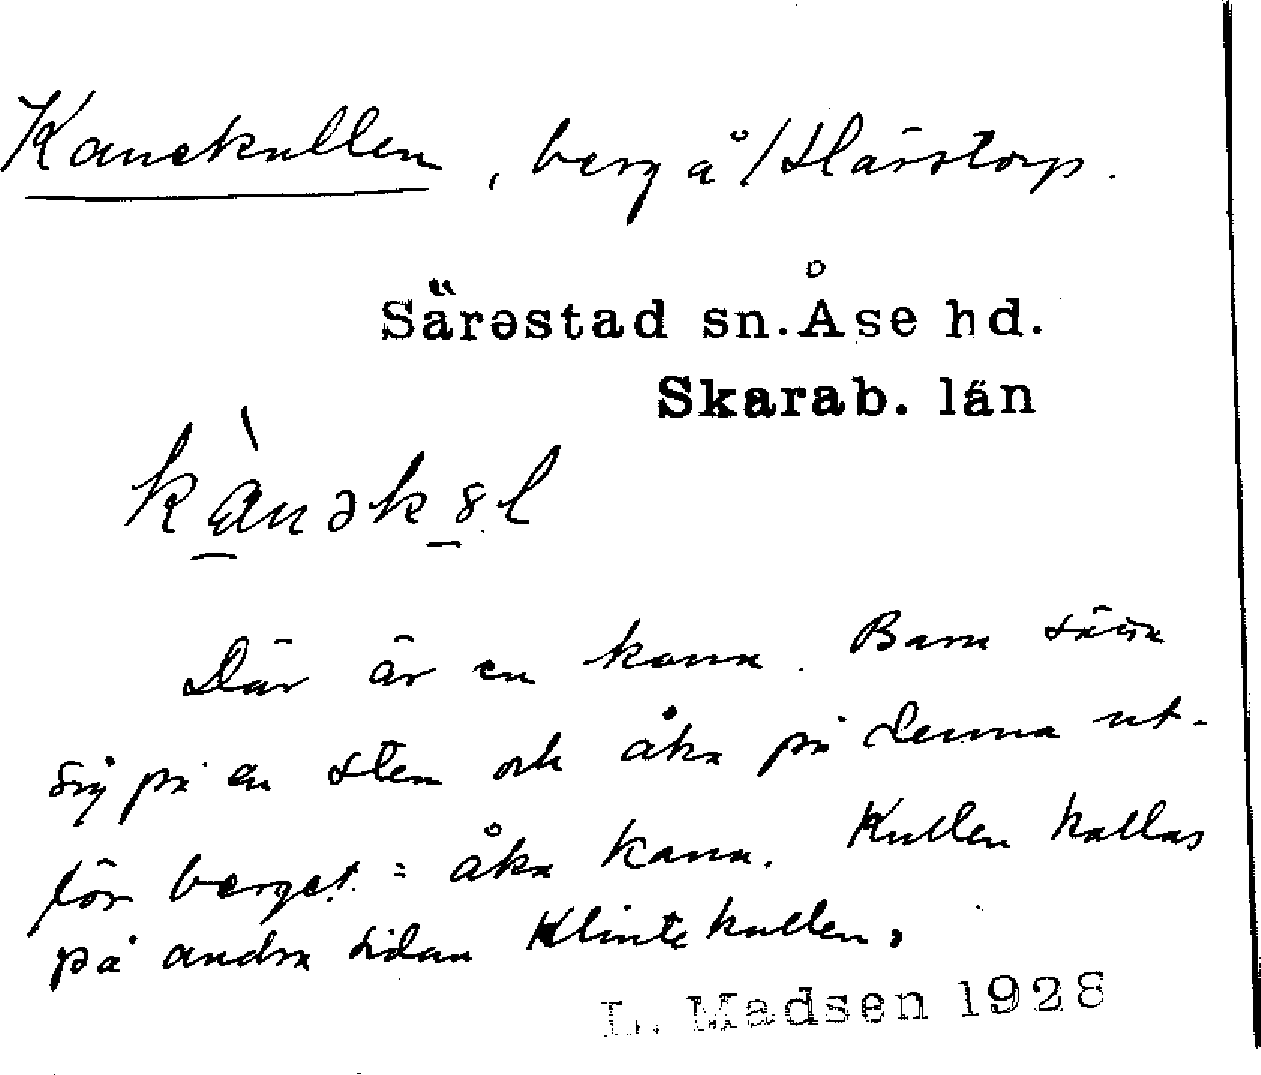 Kanekullen, berg å/Härstorp.
Särəstad sn. Åse hd.
Skarab. län
kànəkəl
Där är en kana. Barn sätta
sig på en sten och åka på denna ut-
för berget = åka kana. Kullen kallas
på andra sidan Klintekullen.
L. Madsen 1928